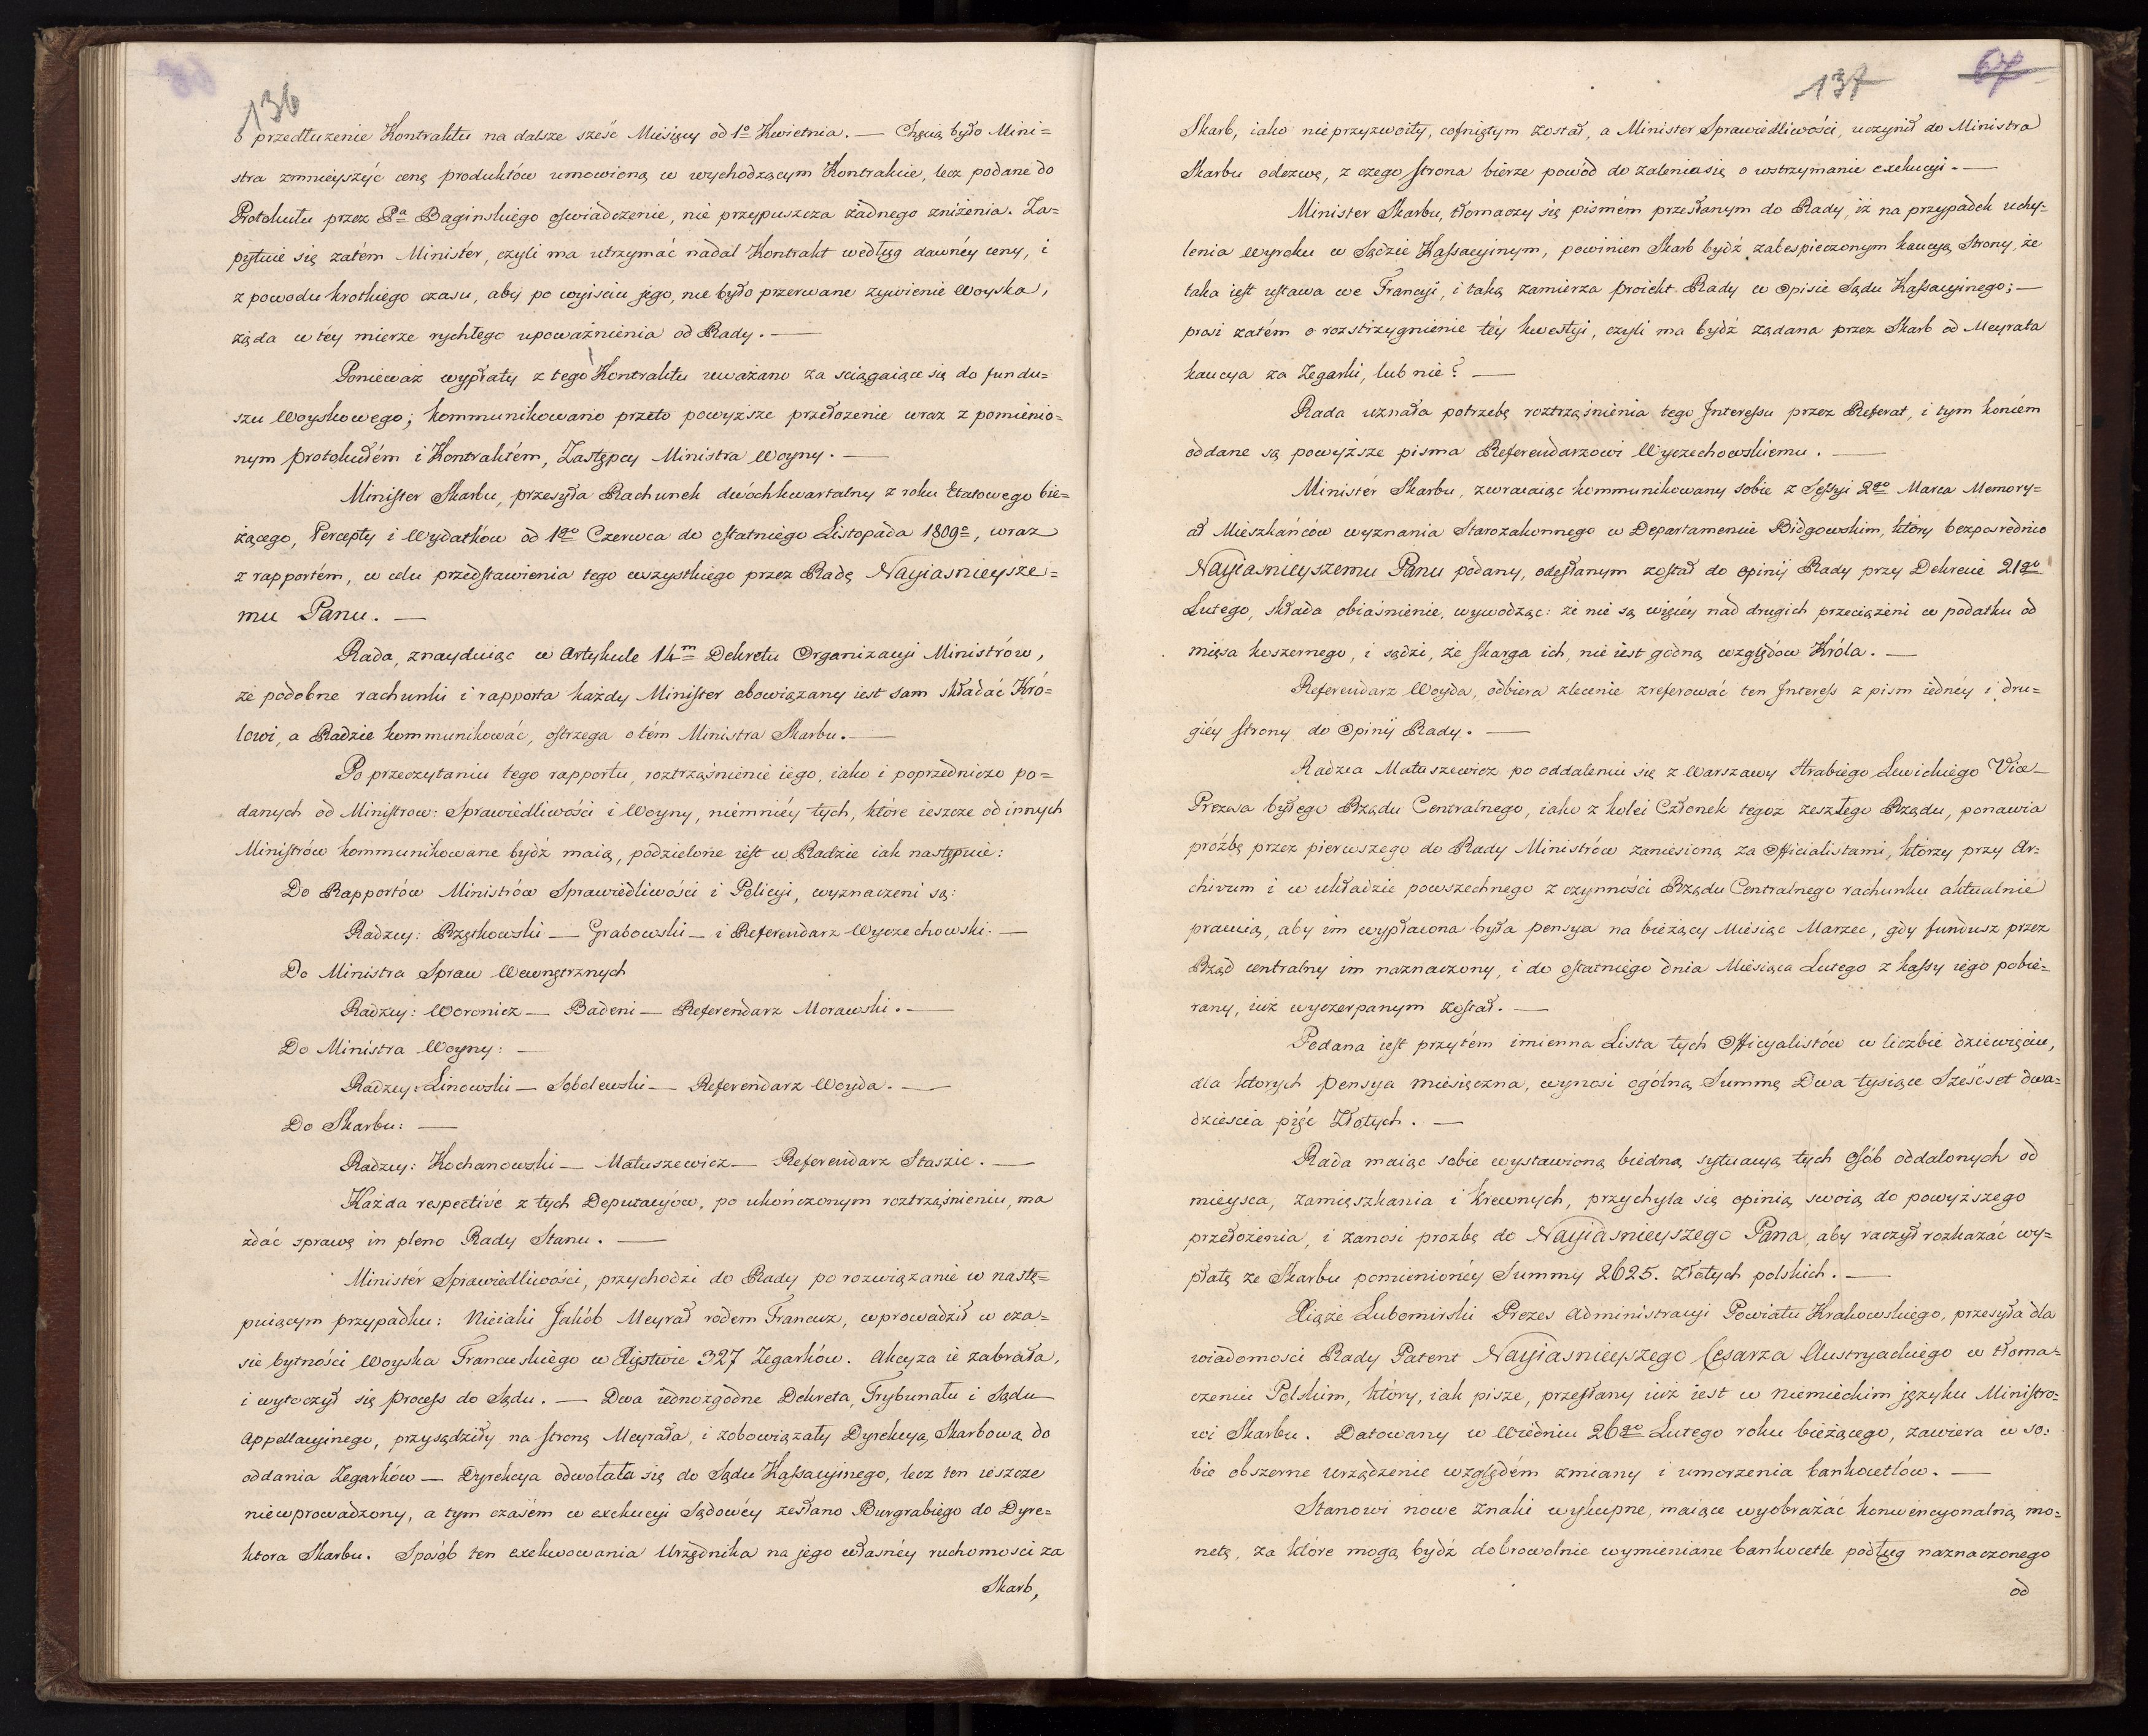 136
o przedłużenie Kontraktu na dalsze sześć Miesięcy od 1o Kwietnia. — Chęcią było Mini=
stra zmnieyszyć cenę produktów umowioną w wychodzącym Kontrakcie, lecz podane do
Protokułu przez Pa Baginskiego oświadczenie, nie przypuszcza żadnego zniżenia. Za=
pytuie się zatém Minister, czyli ma utrzymać nadal Kontrakt według dawnéy ceny, i
z powodu krotkiego czasu, aby po wyisciu jego, nie było przerwane żywienie Woyska,
żąda w téy mierze rychłego upoważnienia od Rady. —
Ponieważ wypłaty z tego Kontraktu uważano za sciągaiące się do fundu=
szu Woyskowego; kommunikowano przeto powyższe przełożenie wraz z pomienio=
nym protokułém i Kontraktém, Zastępcy Ministra Woyny. —
Minister Skarbu, przesyła Rachunek dwóchkwartalny z roku Etatowego bie=
żącego, Percepty i Wydatków od 1go Czerwca do ostatniego Listopada 1809o, wraz
z rapportém, w celu przedstawienia tego wszystkiego przez Radę Nayiasnieysze=
mu Panu. —
Rada, znayduiąc w Artykule 14m Dekretu Organizacyi Ministrów,
że podobne rachunki i rapporta każdy Minister obowiązany iest sam składać Kró=
lowi, a Radzie kommunikować, ostrzega o tém Ministra Skarbu. —
Po przeczytaniu tego rapportu, roztrząśnienie iego, iako i poprzedniczo po=
danych od Ministrow: Sprawiedliwości i Woyny, niemniéy tych, które ieszcze od innych
Ministrów kommunikowane bydź maią, podzielone iest w Radzie iak następuie:
Do Rapportów Ministrów Sprawiedliwości i Policyi, wyznaczeni są:
Radzcy: Rzętkowski — Grabowski — i Referendarz Wyczechowski. —
Do Ministra Spraw Wewnętrznych
Radzcy: Woronicz — Badeni — Referendarz Morawski. —
Do Ministra Woyny: —
Radzcy: Linowski — Sobolewski — Referendarz Woyda. —
Do Skarbu: —
Radzcy: Kochanowski — Matuszewicz — Referendarz Staszic. —
Każda respectivé z tych Deputacyów, po ukończonym roztrząśnieniu, ma
zdać sprawę in pleno Rady Stanu. —
Minister Sprawiedliwości, przychodzi do Rady po rozwiązanie w nastę=
puiącym przypadku: Nieiaki Jakób Meyrat rodem Francuz, wprowadził w cza=
sie bytności Woyska Francuskiego w Xięstwie 327 Zegarków. Akcyza ie zabrała,
i wytoczył się process do Sądu. — Dwa iednozgodne Dekreta, Trybunału i Sądu
Appellacyinego, przysądziły na stronę Meyrata, i zobowiązały Dyrekcyą Skarbową do
oddania Zegarków — Dyrekcya odwołała się do Sądu Kassacyinego, lecz ten ieszcze
niewprowadzony, a tym czasém w exekucyi Sądowéy zesłano Burgrabiego do Dyre=
ktora Skarbu. Sposób ten exekwowania Urzędnika na jego własnéy ruchomości za
Skarb,
137
67
Skarb, iako nieprzyzwoity, cofniętym został, a Minister Sprawiedliwości, uczynił do Ministra
Skarbu odezwę, z czego strona bierze powód do żalenia się o wstrzymanie exekucyi. —
Minister Skarbu, tłomaczy się pismém przesłanym do Rady, iż na przypadek uchy=
lenia Wyroku w Sądzie Kassacyinym, powinien Skarb bydź zabespieczonym kaucyą Strony, że
taka iest ustawa we Francyi, i taką zamierza proiekt Rady w Opisie Sądu Kassacyinego; —
prosi zatém o rozstrzygnienie téy kwestyi, czyli ma bydź żądana przez Skarb od Meyrata
kaucya za Zegarki, lub nie? —
Rada uznała potrzebę roztrząśnienia tego Interessu przez Referat, i tym końcém
oddane są powyższe pisma Referendarzowi Wyczechowskiemu. —
Minister Skarbu, zwracaiąc kommunikowany sobie z Sessyi 2go Marca Memory=
ał Mieszkańców wyznania Starozakonnego w Departamencie Bidgowskim, który bezpośrednio
Nayiasnieyszemu Panu podany, odesłanym został do opinij Rady przy Dekrecie 21go
Lutego, składa obiaśnienie, wywodząc: że nie są więcéy nad drugich przeciążeni w podatku od
mięsa koszernego, i sądzi, że skarga ich, nie iest godną względów Króla. —
Referendarz Woyda, odbiera zlecenie zreferować ten Interess z pism iednéy i dru=
giéy strony do Opinij Rady. —
Radzca Matuszewicz po oddaleniu się z Warszawy Hrabiego Lewickiego Vice—
Prezesa byłego Rządu Centralnego, iako z kolei Członek tegoż zeszłego Rządu, ponawia
próźbę przez pierwszego do Rady Ministrów zaniesioną za Officialistami, którzy przy Ar=
chivum i w układzie powszechnego z czynności Rządu Centralnego rachunku aktualnie
pracuią, aby im wypłacona była pensya na bieżący Miesiąc Marzec, gdy fundusz przez
Rząd centralny im naznaczony, i do ostatniego dnia Miesiąca Lutego z kassy iego pobie=
rany, iuż wyczerpanym został. —
Podana iest przytém imienna Lista tych Officyalistów w liczbie dziewięciu,
dla ktorych pensya miesięczna, wynosi ogólną Summę Dwa tysiące Sześćset dwa=
dzieścia pięć Złotych. —
Rada maiąc sobie wystawioną biedną sytuacyą tych Osób oddalonych od
mieysca, zamięszkania i krewnych, przychyla się opinią swoią do powyższego
przełożenia, i zanosi prozbę do Nayiasnieyszego Pana, aby raczył rozkazać wy=
płatę ze Skarbu pomienionéy Summy 2625. Złotych polskich. —
Xiąże Lubomirski Prezes Administracyi Powiatu Krakowskiego, przesyła dla
wiadomosci Rady Patent Nayiasnieyszego Cesarza Austryackiego w tłoma=
czeniu Polskim, który, iak pisze, przesłany iuż iest w niemieckim języku Ministro=
wi Skarbu. Datowany w Wiedniu 26go Lutego roku bieżącego, zawiera w so=
bie obszerne urządzenie względém zmiany i umorzenia bankocetlów. —
Stanowi nowe znaki wykupne, maiące wyobrażać konwencyonalną mo=
netę, za które mogą bydź dobrowolnie wymieniane bankocetle podług naznaczonego
od